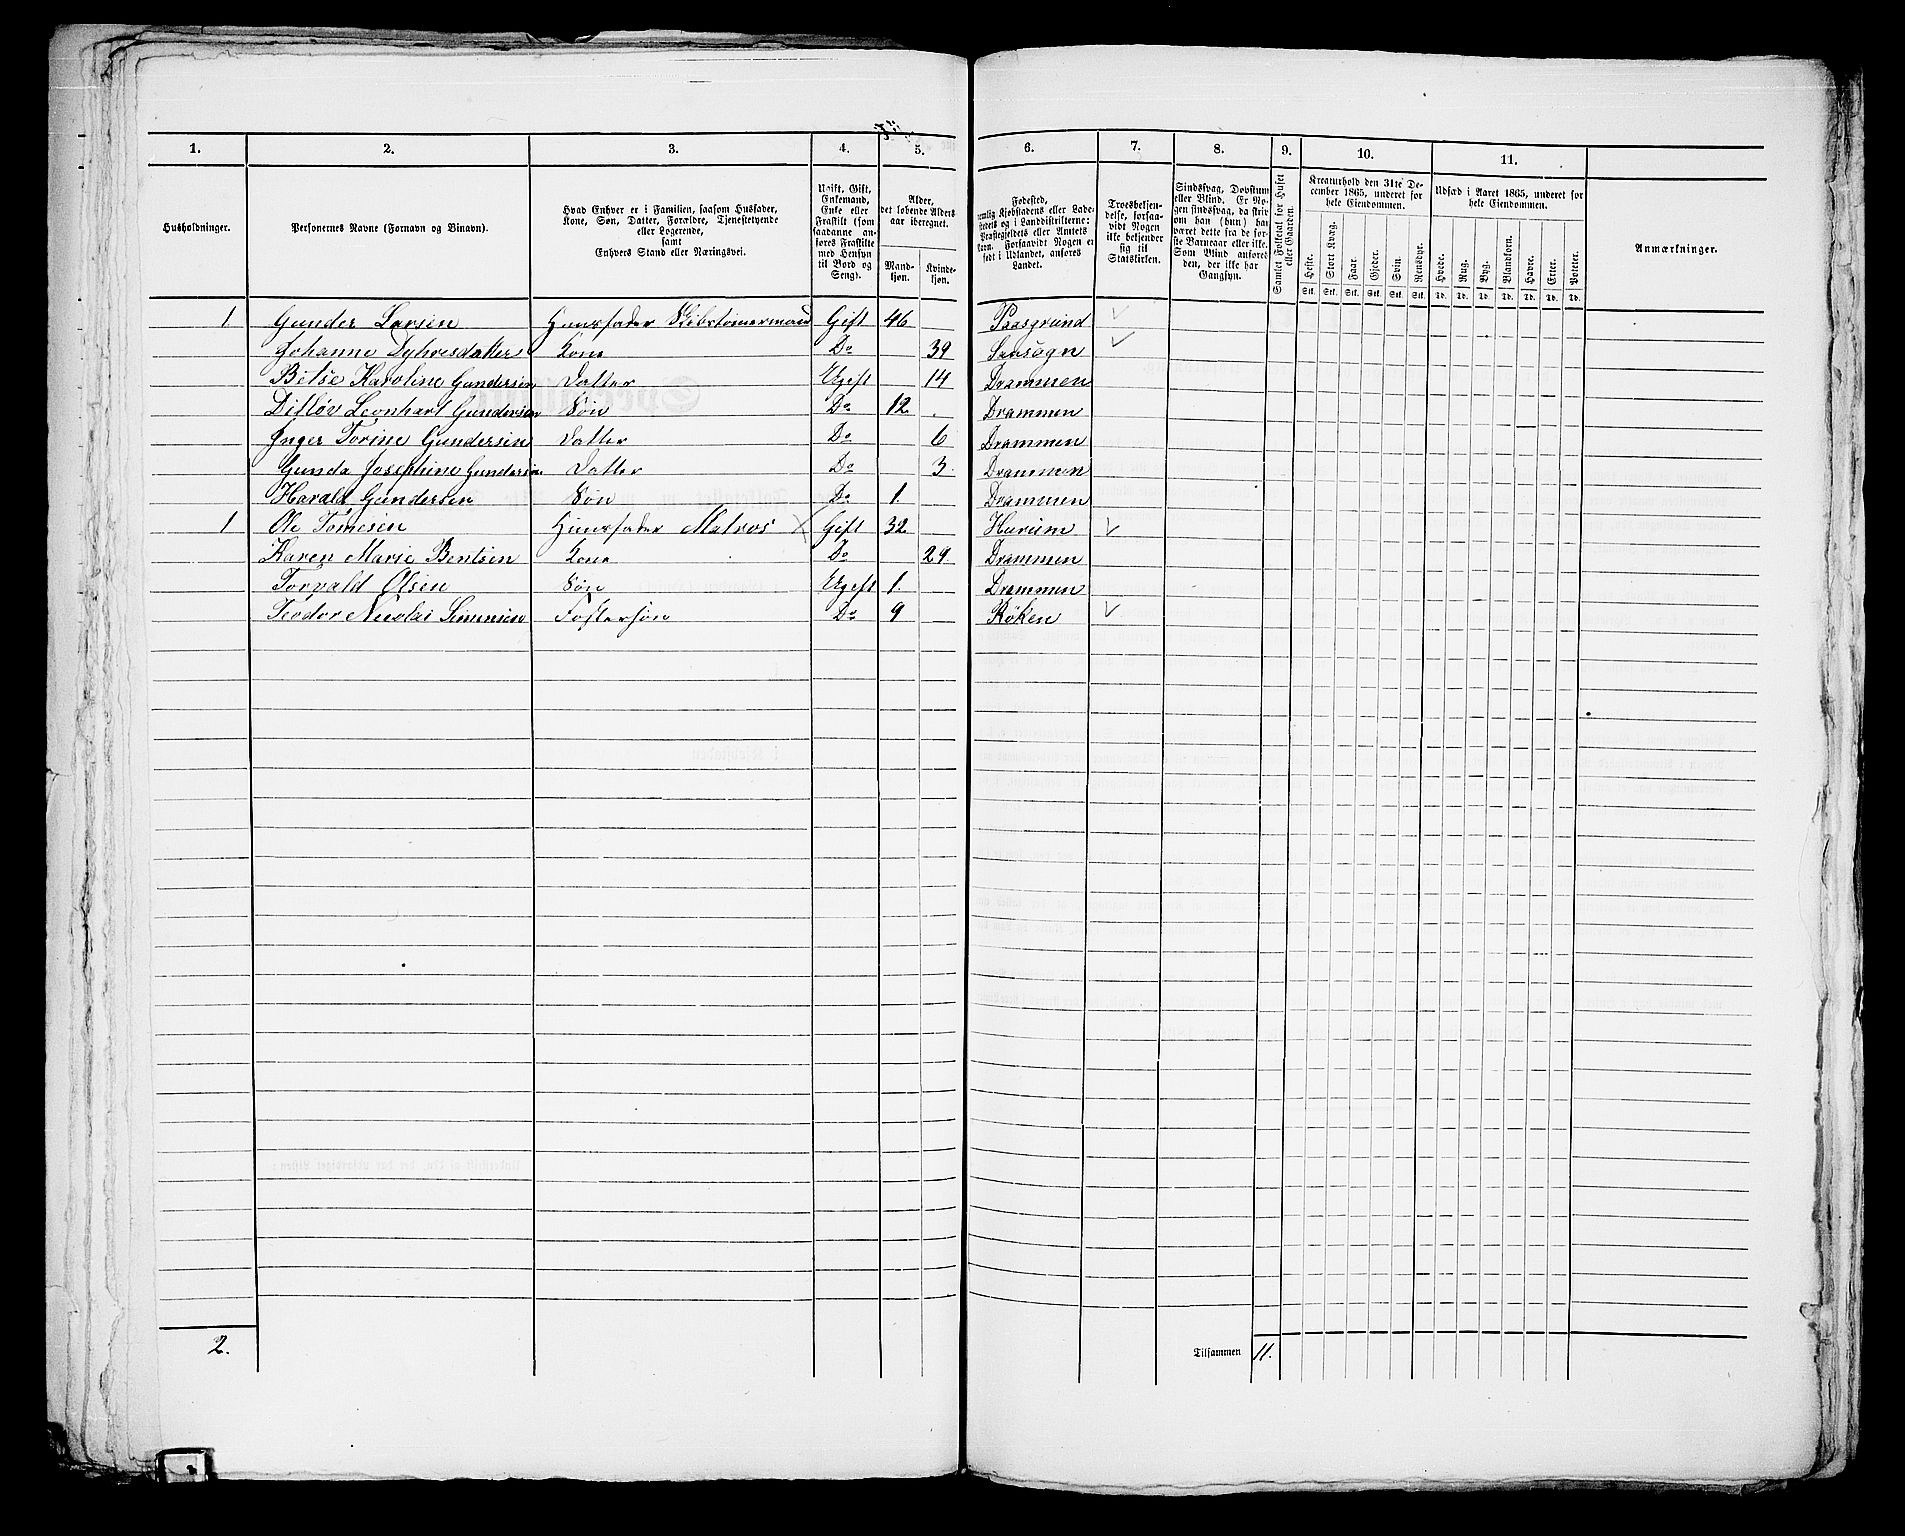 1. 2. 3. 4. 5. 6. 7. 8. 9. 10. 11.
Husholdninger.
Personernes Navne (Fornavn og Binavn).
Hvad Enhver er i Familien, saasom Husfader,
Kone, Søn, Datter, Forældre, Tjenestetyende
eller Logerende,
samt
Enhvers Stand eller Næringsvei.
Ugift, Gift,
Enkemand,
Enke eller
Fraskilt (som
saadanne an-
føres Fraskilte
med Hensyn
til Bord og
Seng).
Alder,
det løbende Alders-
aar iberegnet.
Mand-
kjøn.
Kvinde-
kjøn.
Fødested,
nemlig Kjøbstadens eller Lade-
stedets og i Landdistrikterne:
Præstegjeldets eller Amtets
Navn. Forsaavidt Nogen er
født i Udlandet, anføres
Landet.
Troesbekjen-
delse, forsaa-
vidt Nogen
ikke bekjender
sig til
Statskirken.
Sindssvag, Døvstum
eller Blind. Er No-
gen sindssvag, da skriv
om han (hun) har
været dette fra de før-
ste Barneaar eller ikke.
Som Blind anføres
den, der ikke har
Gangsyn.
Samlet Folketal for Huset
eller Gaarden.
Kreaturhold den 31te De-
cember 1865, underet for
hele Eiendommen.
Heste. Stort Kvæg. Faar. Gjeder. Svin. Rensdyr.
Stk. Stk. Stk. Stk. Stk. Stk.
Udsæd i Aaret 1865, underet for
hele Eiendommen.
Hvede. Rug. Byg. Blandkorn. Havre. Erter. Poteter.
Td. Td. Td. Td. Td. Td. Td.
Anmærkninger.
1 Gunder Larsen Huusfader Skibstømermand Gift 46 Paasgrund
Johanne Kone Do 39
Betse Karoline Gundersen Datter Ugift 14 Drammen
Ditløv Leonhart Gundersen Søn Do 12 Drammen
Inger Torine Gundersen Datter Do 6 Drammen
Gunda Josephine Gundersen Datter Do 3 Drammen
Harald Gundersen Søn Do 1. Drammen
1 Ole Tomesen Huusfader Matros Gift 32 Hurum
Karen Marie Bentsen Kone Do 29 Drammen
Torvald Olsen Søn Ugift 1. Drammen
Teodor Nicolai Simensen Fostersøn Do 9 Röken
2.
Tilsammen 11.